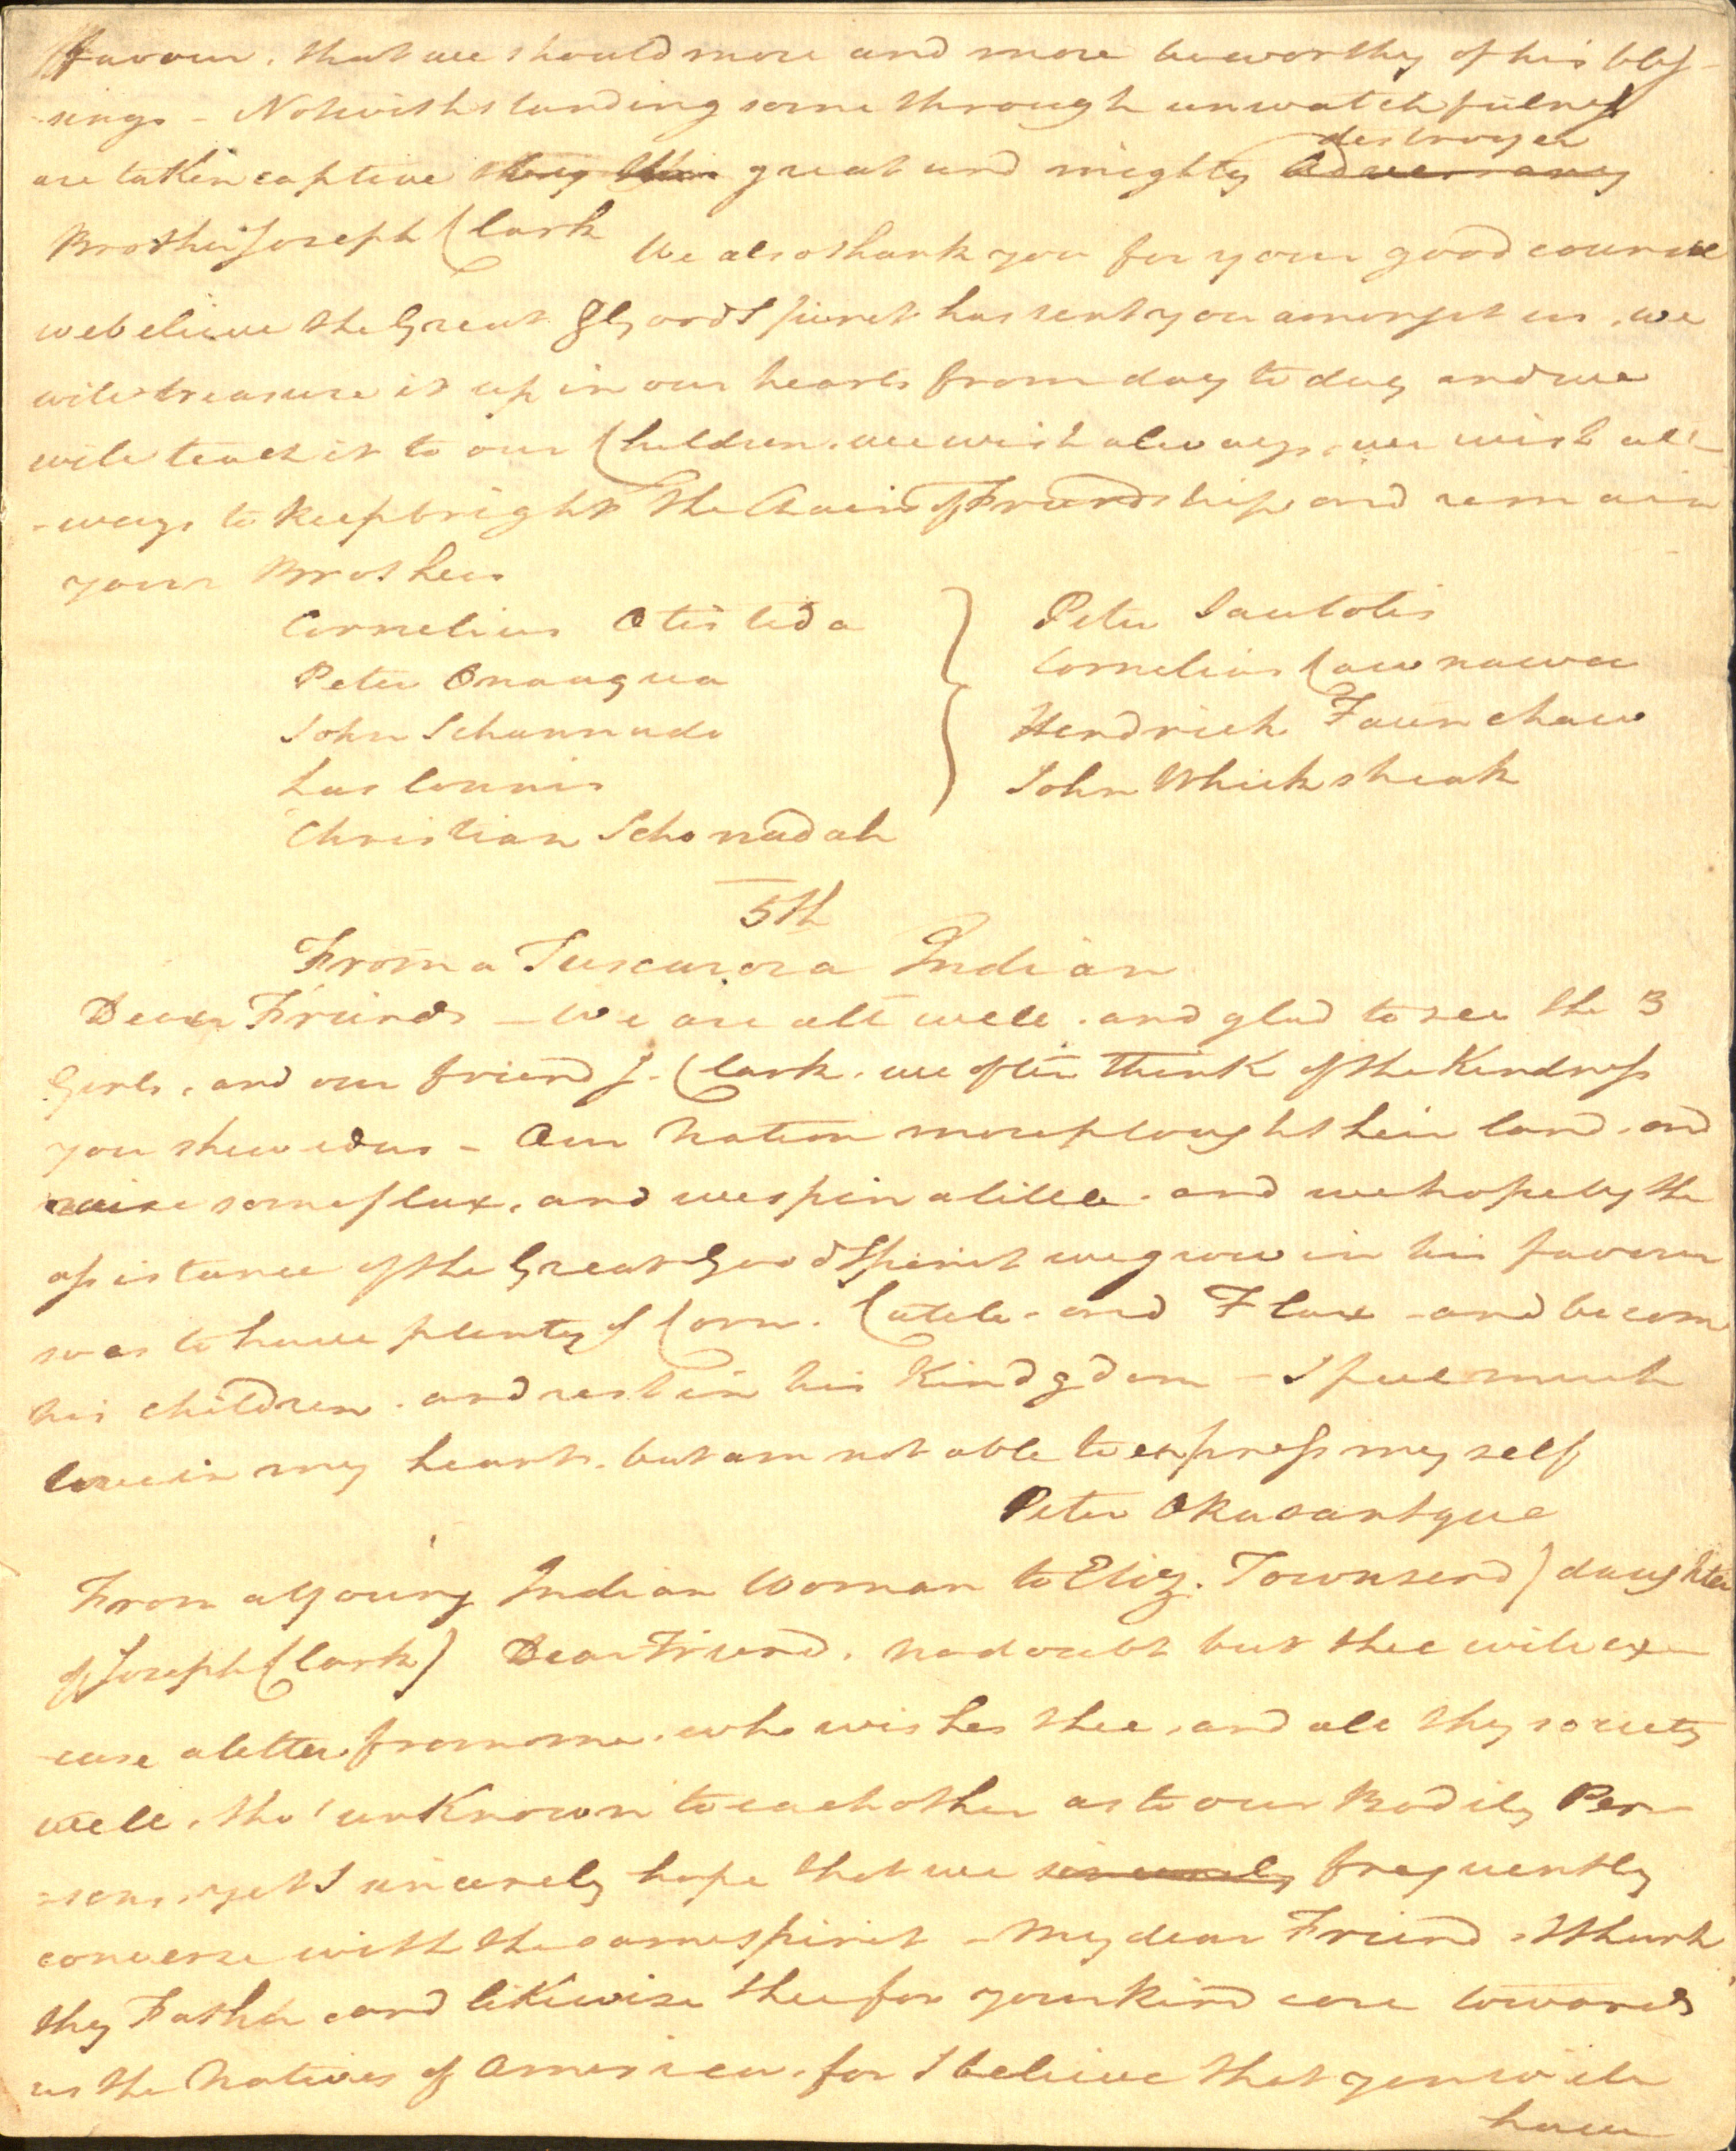 ffavour, that we should more and more be worthy of his bles-
-sings - Notwithstanding some through unwatchfulness
destroyer
are taken captive by the great and mighty Adversary
Brother Joseph Clark We also thank you for your good council
we believe the Great & Good Spirit has sent you amongst us, we
will treasure it up in our hearts from day to day and we
will teach it to our Children. we wish always, we wish all-
-ways to keep bright the Chain of Friendship and remain
your Brothers
Cornelius Otisteda } Peter Sautolis
Peter Onaugua Cornelius Cawnawa
John Schannado } Hendrick Faunchaw
Las Counis John Whicksheak
Christian Schonadah
5th
From a Tuscurora Indian
Dear Friends - We are all well. and glad to see the 3
Girls, and our friend J. Clark. we often think of the Kindness
you shewed us - Our Nation more plought their land. and
raise some flax, and we spin a little. and we hope by the
assistance of the Great Good Spirit we grow in his favour
so as to have plenty of Corn. Cattle - and Flax - and becom
his children. and rest in his Kindgdom - I feel much
love in my heart. but am not able to express my self
Peter Okasantque
From a Young Indian Woman to Eliz. Townsend) daughter
of Joseph Clark) Dear Friend. no doubt but thee will ex-
-cuse a letter from me. who wishes thee, and all thy society
well, tho' unKnown to each other as to our Bodily Per-
-sons, yet I sincerely hope that we sincerely frequently
converse with the same spirit - My dear Friend, I thank
thy Father and likewise thee for your kind care towards
us the Natives of America, for I believe that you will
have